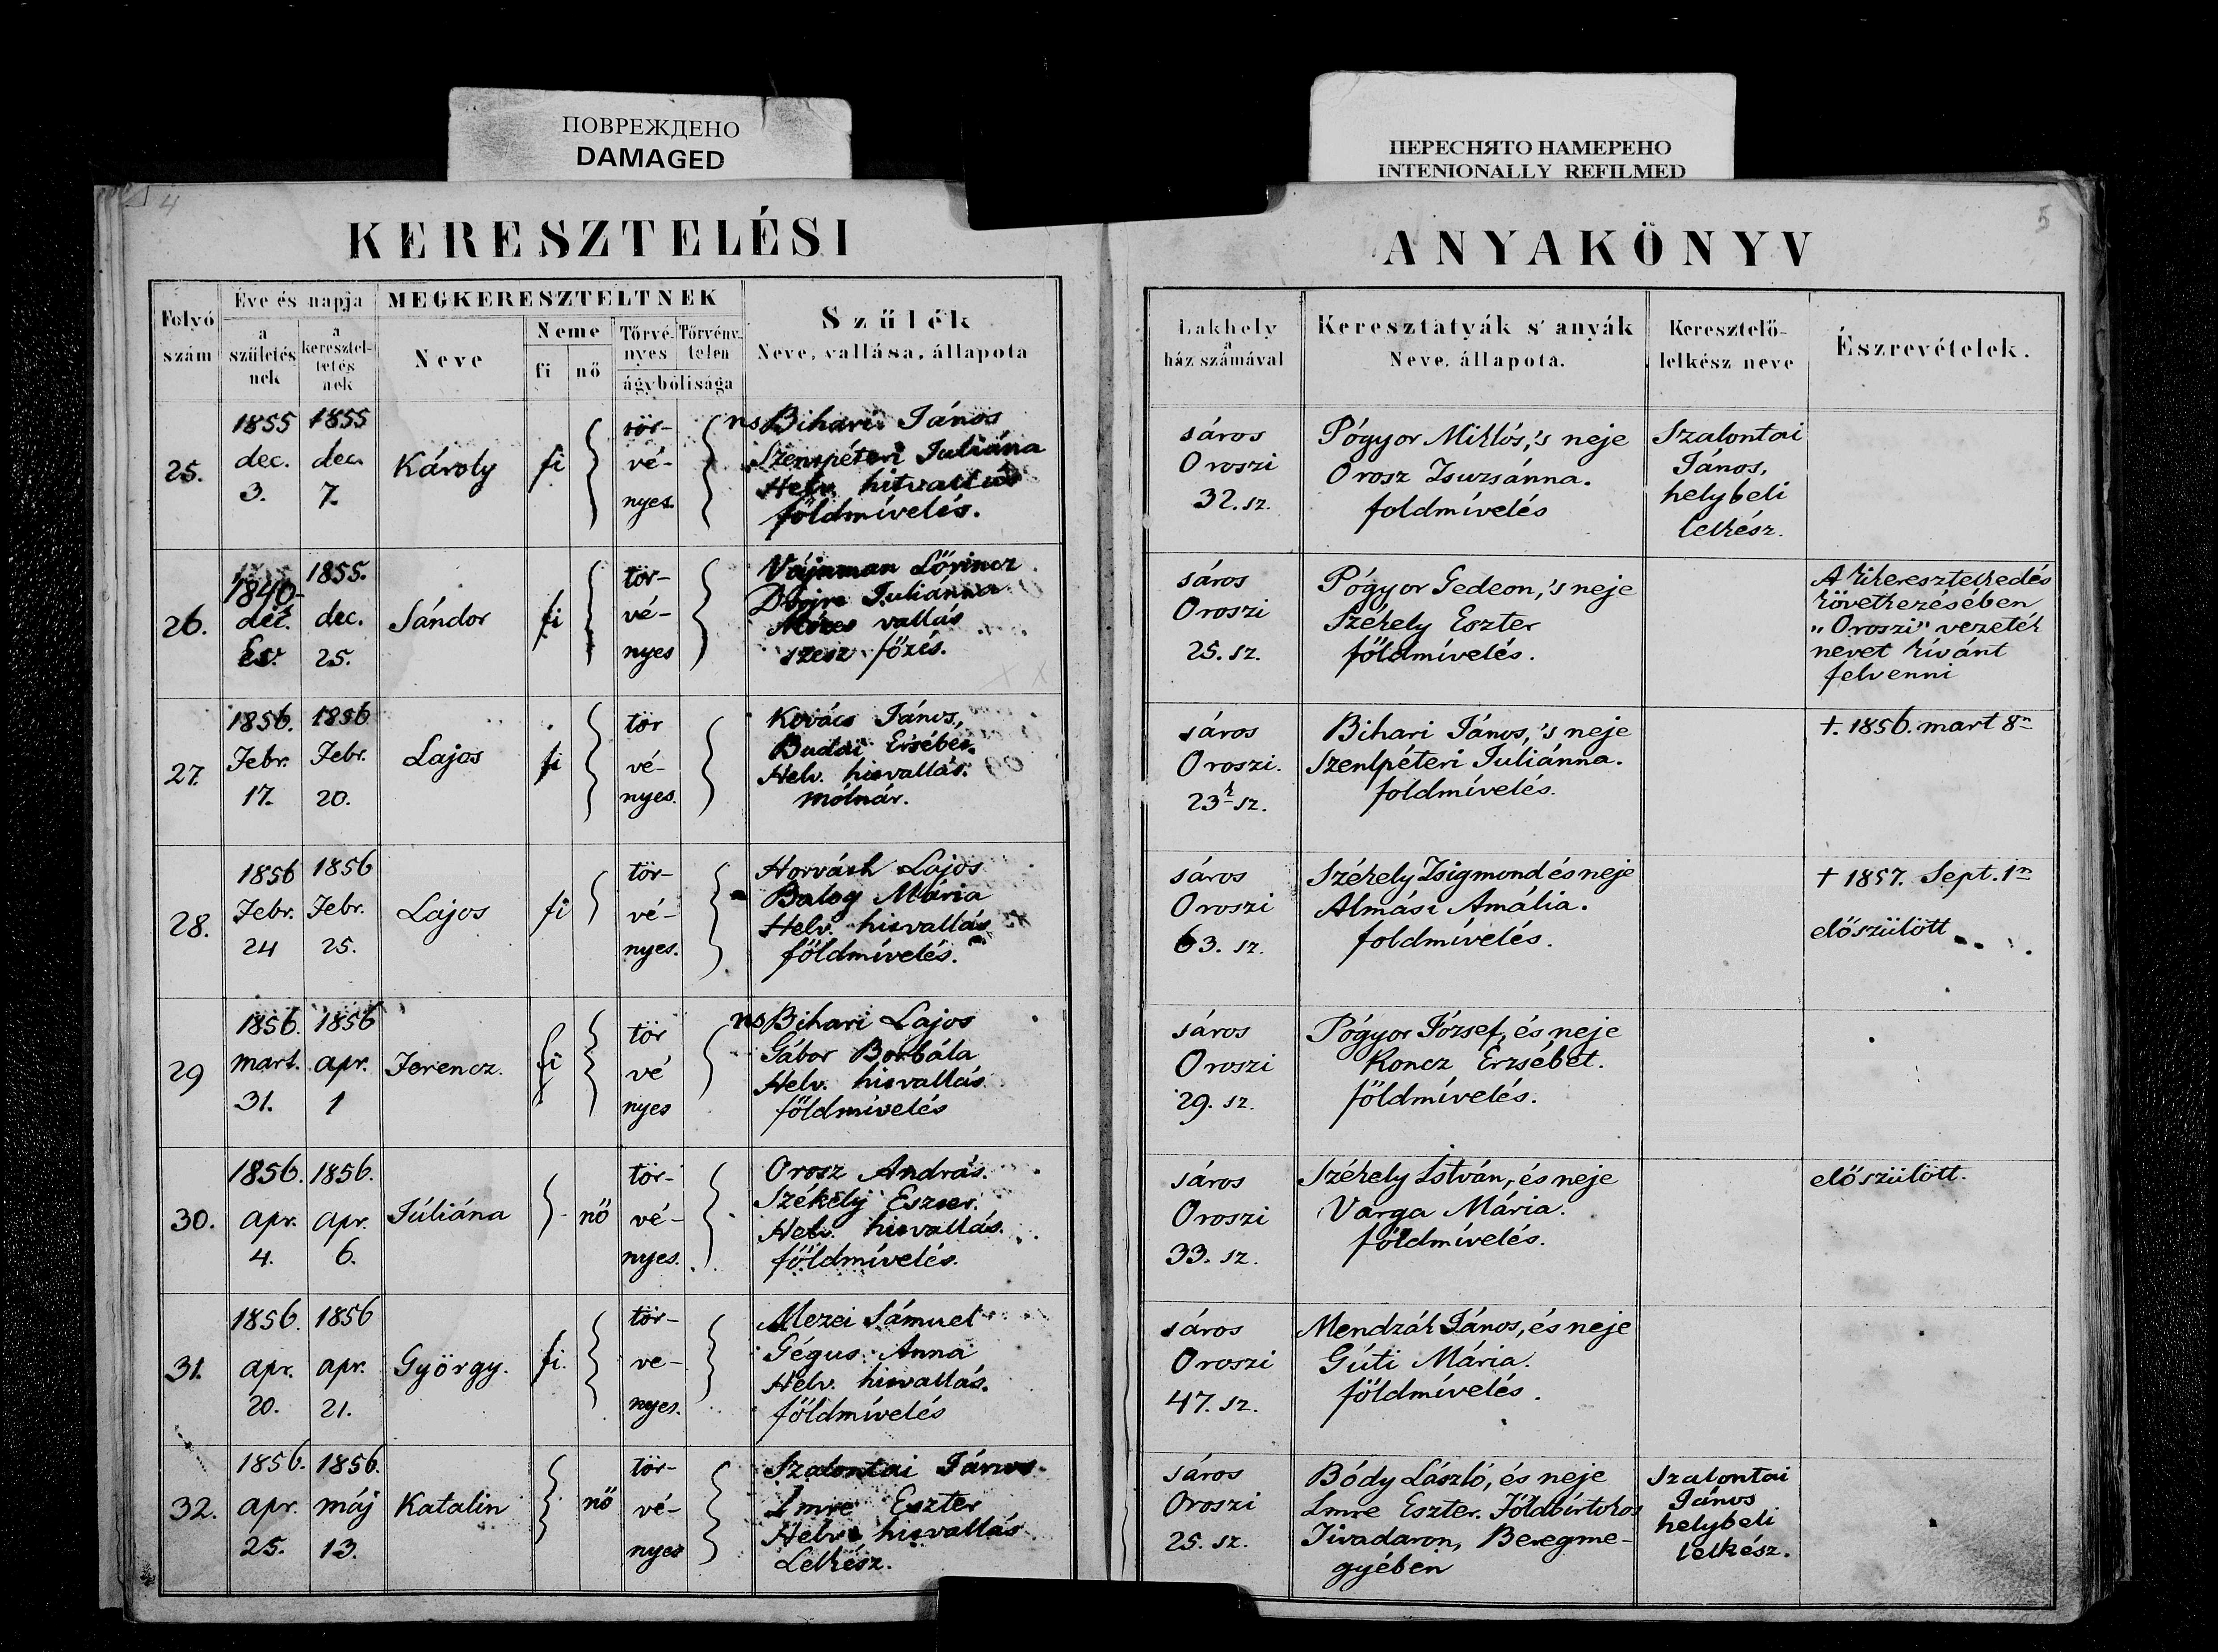 ПОВРЕЖДЕНО
DAMAGED
ПЕРЕСНЯТО НАМЕРЕНО
INTENIONALLY REFILMED
4
KERESZTELÉSI
Folyó szám
Éve és napja
a születés nek
a keresztel- tetés nek
MEGKERESZTELTNEK
Neve
Neme
fi
nő
Törvé- nyes
Törvény- telen
ágybólisága
Szülék
Neve, vallása, állapota
25.
1855 dec. 3.
1855 dec. 7.
Károly
fi
tör-
vé-
nyes.
ns Bihari János
Szentpéteri Juliána
Helv. hitvallás
földmívelés.
26.
1840 dec.
1855. dec. 25.
Sándor
fi
tör-
vé-
nyes
Lőrincz
Julianna
Mózes vallás
szesz főzés.
27.
1856. Febr. 17.
1856 Febr. 20.
Lajos
fi
tör
vé-
nyes.
Kovács János,
Budai Ersébet.
Helv. hitvallás.
mólnár.
28.
1856 Febr. 24
1856 Febr. 25.
Lajos
fi
tör-
vé-
nyes.
Horváth Lajos
Balog Mária
Helv. hitvallás
földmívelés.
29
1856. mart. 31.
1856 apr. 1
Ferencz.
fi
tör
vé
nyes
ns Bihari Lajos
Gábor Borbála
Helv. hitvallás
földmívelés
30.
1856. apr. 4.
1856. apr. 6.
Júliána
nő
tör-
vé-
nyes.
Orosz András.
Székely Eszter.
Helv. hitvallás.
földmívelés.
31.
1856. apr. 20.
1856 apr. 21.
György.
fi.
tör-
ve-
nyes.
Mezei Sámuel
Gégus Anna
Helv. hitvallás.
földmívelés
32.
1856. apr. 25.
1856. máj 13.
Katalin
nő
tör-
vé-
nyes
Szalontai János
Imre Eszter
Helv. hitvallás
Lelkész.
5
ANYAKÖNYV
Lakhely
a
ház számával
Keresztatyák s' anyák
Neve, állapota.
Keresztelő-
lelkész neve
Észrevételek.
sáros
Oroszi
32. sz.
Pógyor Miklós, 's neje
Orosz Zsuzsánna.
foldmívelés
Szalontai
János,
helybeli
lelkész.
sáros
Oroszi
25. sz.
Pógyor Gedeon, 's neje
Székely Eszter
földmívelés.
A kikeresztelkedés
következésében
"Oroszi" vezeték
nevet kívánt
felvenni
sáros
Oroszi.
23 sz.
Bihari János, 's neje
Szentpéteri Juliánna.
foldmívelés.
†. 1856. mart 8n
sáros
Oroszi
63. sz.
Székely Zsigmond és neje
Almási Amália.
foldmívelés.
† 1857. Sept. 1n
előszülött
sáros
Oroszi
29. sz.
Pógyor József, és neje
Koncz Erzsébet.
földmívelés.
sáros
Oroszi
33. sz.
Székely István, és neje
Varga Mária.
földmívelés.
előszülött.
sáros
Oroszi
47. sz.
Mendzák János, és neje
Gúti Mária.
földmívelés.
sáros
Oroszi
25. sz.
Bódy László, és neje
Imre Eszter. Földbirtokos
Tivadaron, Beregme-
gyében
Szalontai
János
helybeli
lelkész.